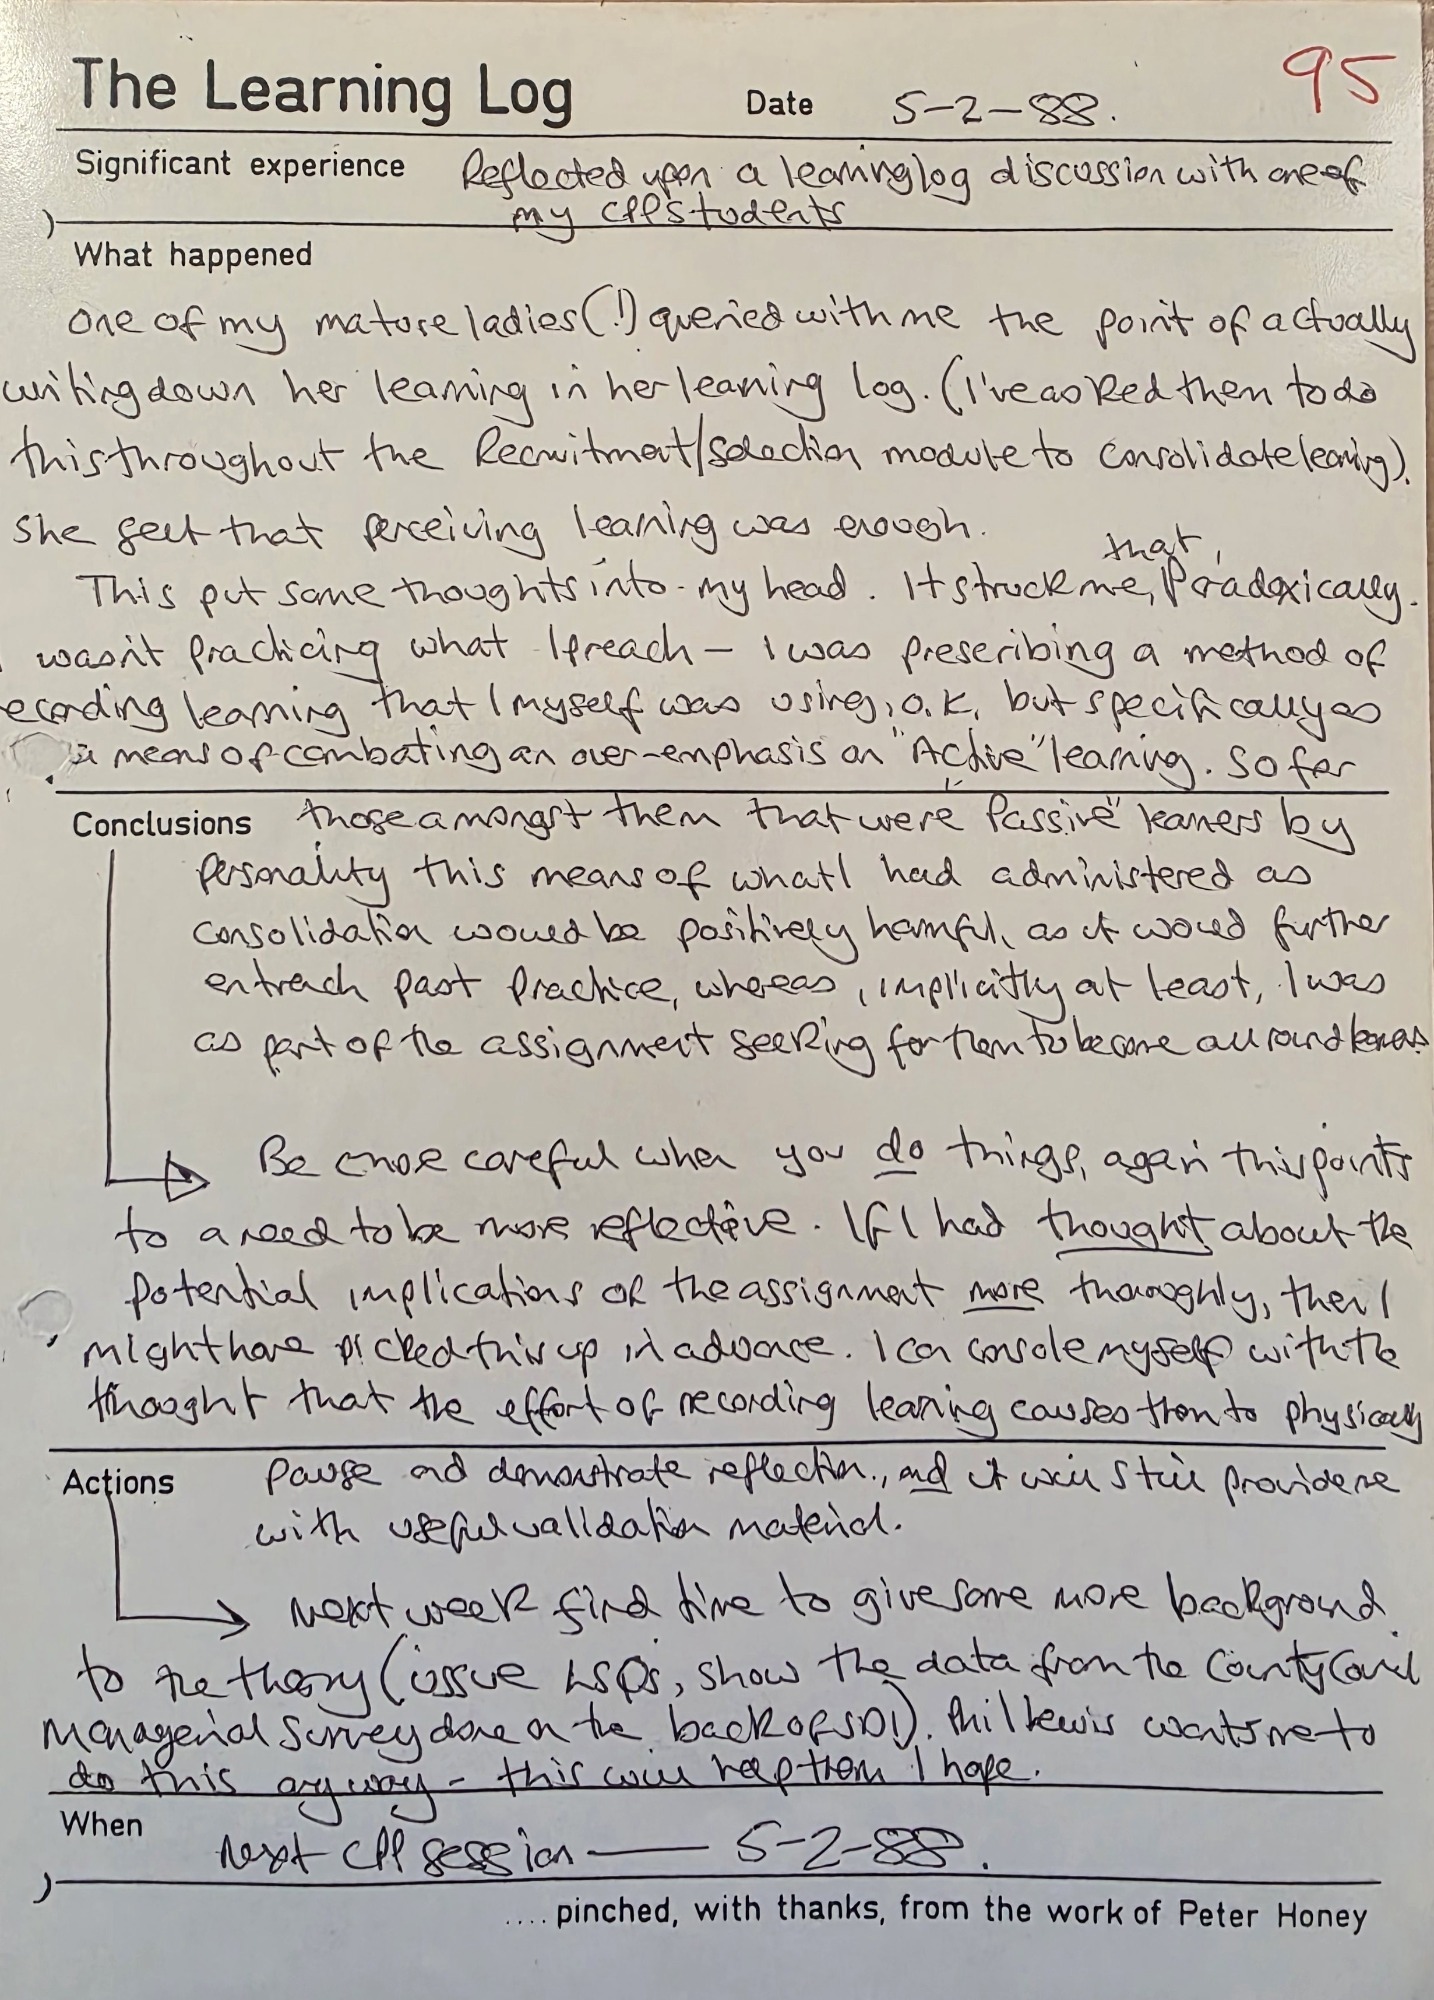 The Learning Log Date 5-2-88. 95
Significant experience Reflected upon a learning log discussion with one of
my CPP students
What happened
One of my mature ladies (!) queried with me the point of actually
writing down her learning in her learning log. (I've asked them to do
this throughout the Recruitment/Selection module to consolidate learning).
She felt that perceiving learning was enough.
that,
This put some thoughts into my head. It struck me, Paradoxically.
wasn't practicing what I preach – I was prescribing a method of
ecording learning that I myself was using, o.k, but specifically as
a means of combating an over-emphasis on "Active" learning. So for
Conclusions those amongst them that were "Passive" learners by
personality this means of what I had administered as
consolidation would be positively harmful, as it would further
entrench past practice, whereas, implicitly at least, I was
as part of the assignment seeking for them to become all round learners
Be more careful when you do things, again this points
to a need to be more reflective. If I had thought about the
potential implications of the assignment more thoroughly, then I
might have picked this up in advance. I can console myself with the
thought that the effort of recording learning causes them to physically
Actions pause and demonstrate reflection, and it will still provide me
with useful validation material.
Next week find time to give some more background
to the theory (issue LSQs, show the data from the County Council
Managerial Survey done on the back of SDI). Phil Lewis wants me to
do this anyway – this will help them I hope.
When next CPP session — 5-2-88.
.... pinched, with thanks, from the work of Peter Honey